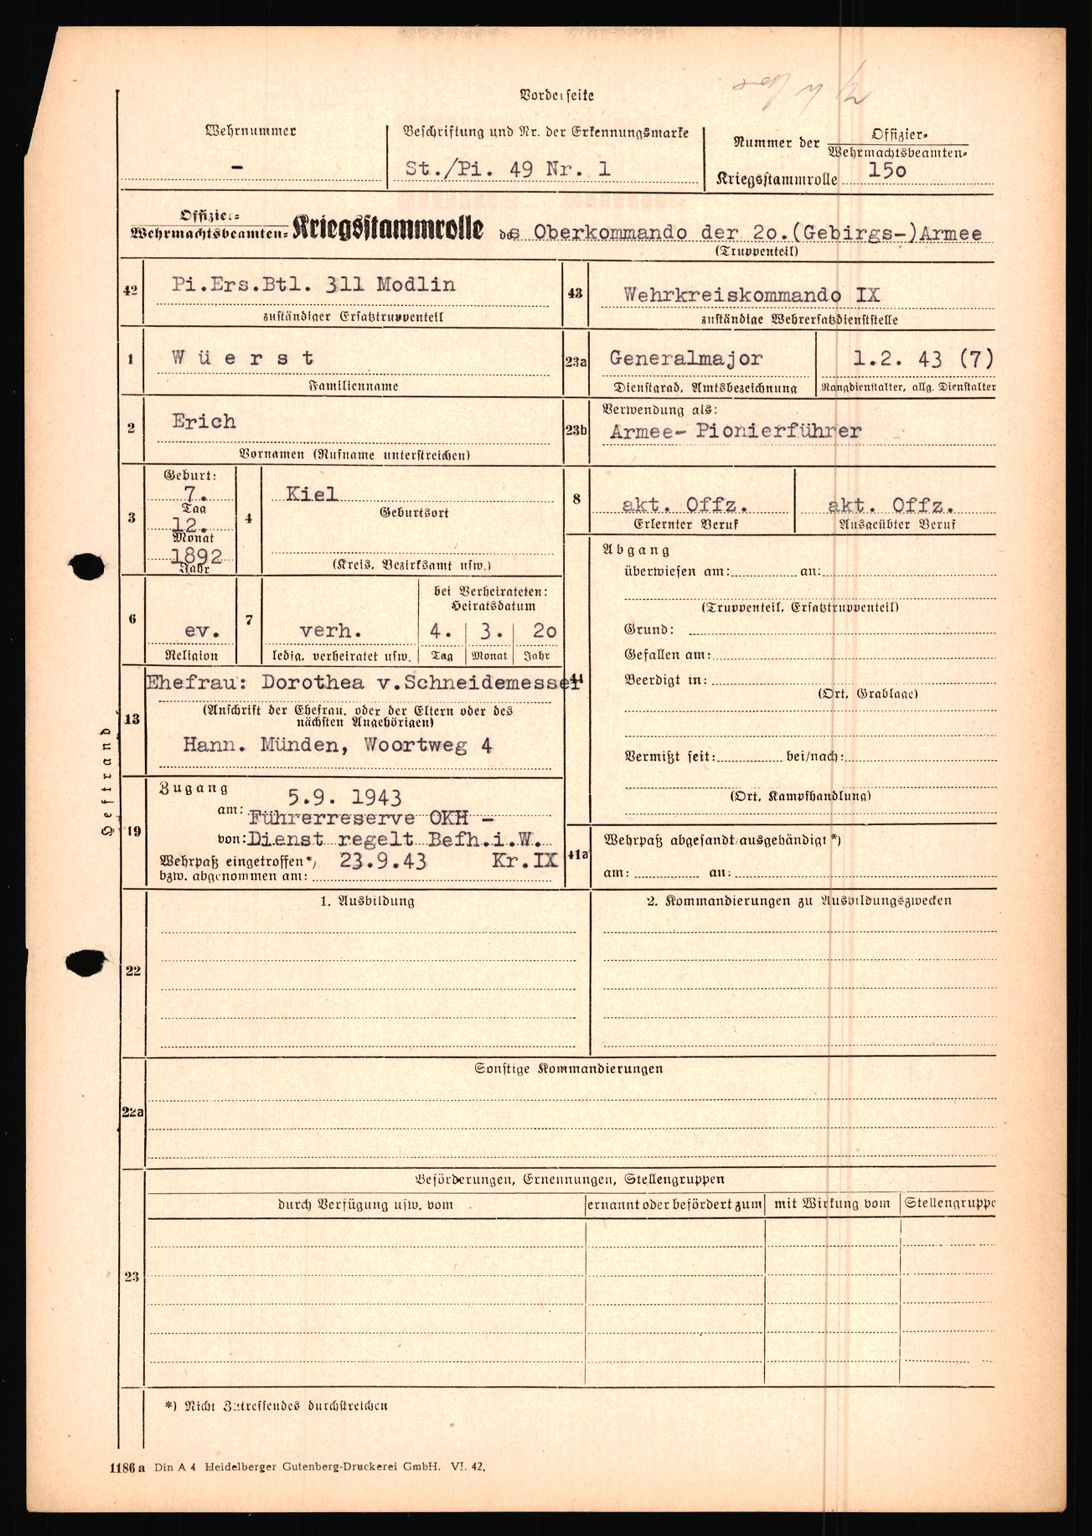 Vorderseite
Wehrnummer
-
Beschriftung und Nr. der Erkennungsmarke
St./Pi. 49 Nr. 1
Nummer der Offizier-
Wehrmachtsbeamten-
Kriegsstammrolle 15o
Offizier-
Wehrmachtsbeamten- Kriegsstammrolle des Oberkommando der 2o.(Gebirgs-)Armee
(Truppenteil)
42 Pi.Ers.Btl. 311 Modlin
zuständiger Ersatztruppenteil
43 Wehrkreiskommando IX
zuständige Wehrersatzdienststelle
1 W ü e r s t
Familienname
23a Generalmajor
Dienstgrad, Amtsbezeichnung
1.2. 43 (7)
Rangdienstalter, allg. Dienstalter
2 Erich
Vornamen (Rufname unterstreichen)
23b Verwendung als:
Armee- Pionierführer
3 Geburt:
7.
Tag
12.
Monat
1892
Jahr
4 Kiel
Geburtsort
(Kreis, Bezirksamt usw.)
8 akt. Offz.
Erlernter Beruf
akt. Offz.
Ausgeübter Beruf
6 ev.
Religion
7 verh.
ledig, verheiratet usw.
bei Verheirateten:
Heiratsdatum
4. 3. 2o
Tag Monat Jahr
13 Ehefrau: Dorothea v.Schneidemesser
(Anschrift der Ehefrau, oder der Eltern oder des
nächsten Angehörigen)
Hann. Münden, Woortweg 4
41 Abgang
überwiesen am: an:
(Truppenteil, Ersatztruppenteil)
Grund:
Gefallen am:
Beerdigt in:
(Ort, Grablage)
Vermißt seit: bei/nach:
(Ort, Kampfhandlung)
Heftrand
19 Zugang
am: 5.9. 1943
Führerreserve OKH -
von: Dienst regelt Befh.i.W.
Wehrpaß eingetroffen*) 23.9.43 Kr.IX
bzw. abgenommen am:
41a Wehrpaß abgesandt/ausgehändigt *)
am: an:
22 1. Ausbildung
2. Kommandierungen zu Ausbildungszwecken
22a Sonstige Kommandierungen
23 Beförderungen, Ernennungen, Stellengruppen
durch Verfügung usw. vom
ernannt oder befördert zum
mit Wirkung vom
Stellengruppe
*) Nicht Zutreffendes durchstreichen
1186 a Din A 4 Heidelberger Gutenberg-Druckerei GmbH. VI. 42.